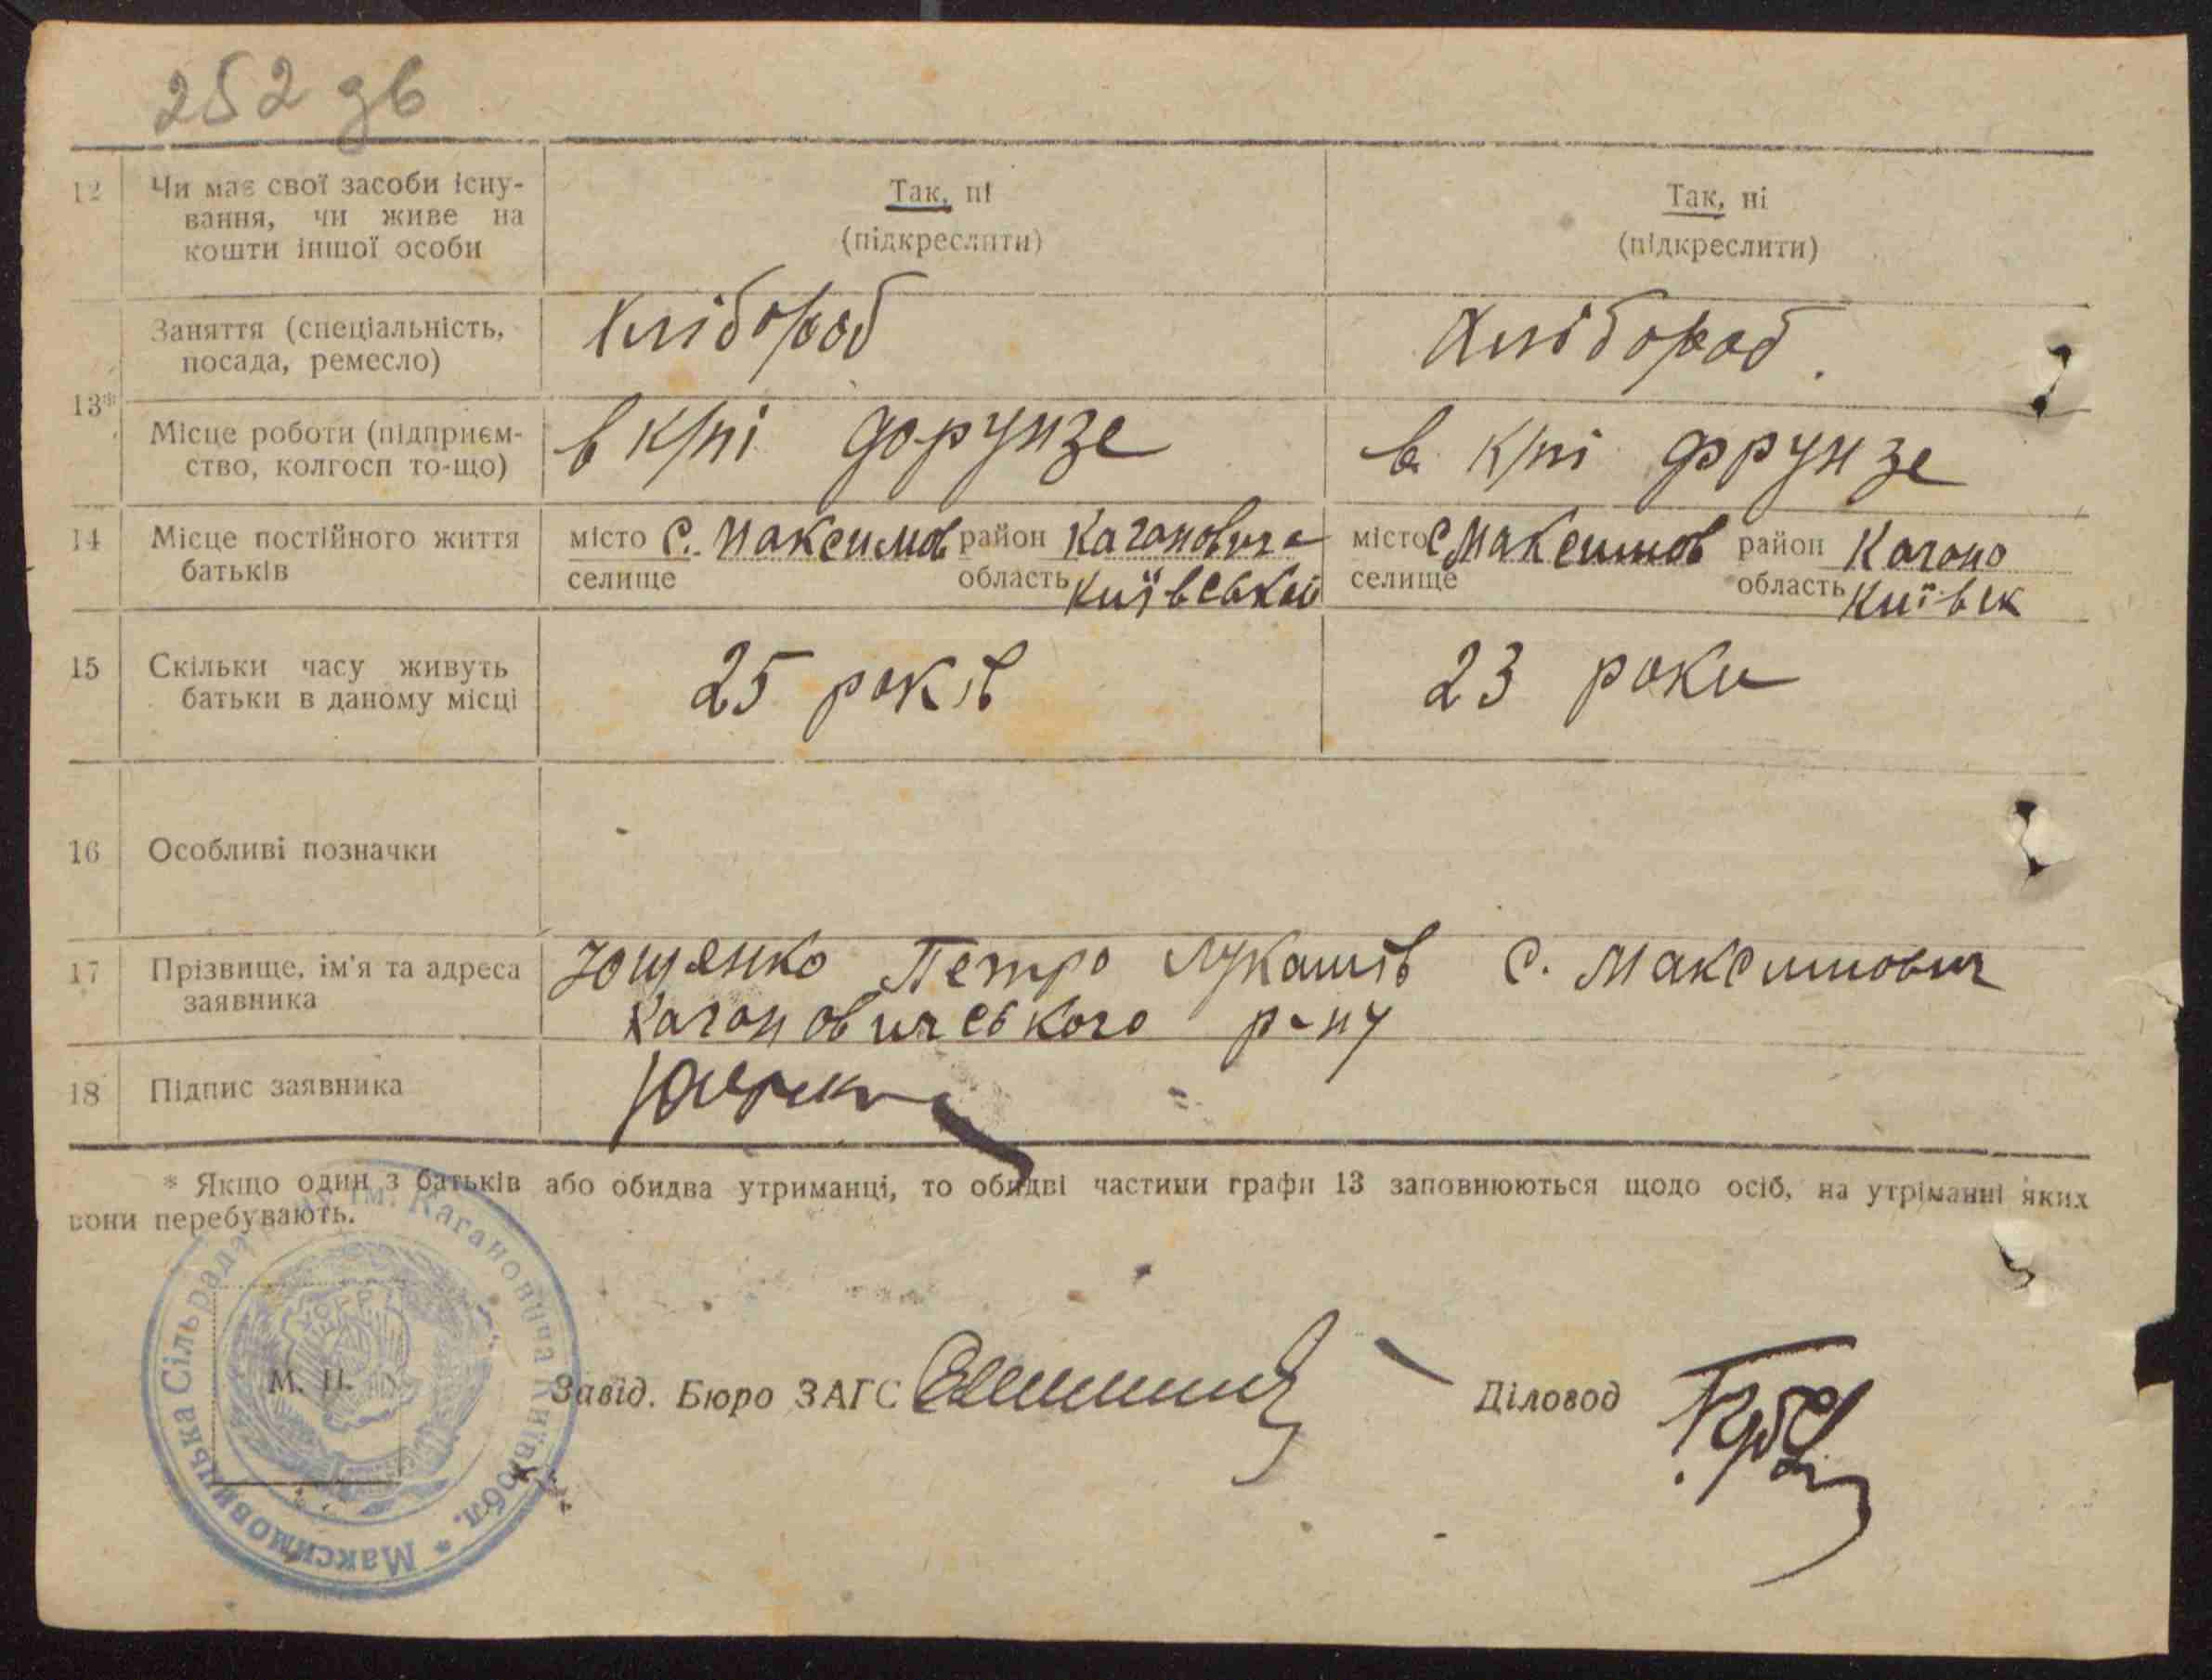 252 зв
12 Чи має свої засоби існу-
вання, чи живе на
кошти іншої особи
Так, ні
(підкреслити)
Так, ні
(підкреслити)
13*
Заняття (спеціальність,
посада, ремесло)
Хлібороб
Хлібороб.
Місце роботи (підприєм-
ство, колгосп то-що)
в к/пі Фрунзе
в к/пі Фрунзе
14 Місце постійного життя
батьків
місто с. Максимов район Кагановича
селище область Київської
місто с Максимов район Кагано
селище область Київськ
15 Скільки часу живуть
батьки в даному місці
25 років
23 роки
16 Особливі позначки
17 Прізвище, ім'я та адреса
заявника
Ющенко Петро Лукашів с. Максимович
Кагановичського р-ну
18 Підпис заявника
* Якщо один з батьків або обидва утриманці, то обидві частини графи 13 заповнюються щодо осіб, на утріманні яких
вони перебувають.
Максимовицька Сільрада ім. Кагановича Київ. обл. *
М. П.
Завід. Бюро ЗАГС
Діловод